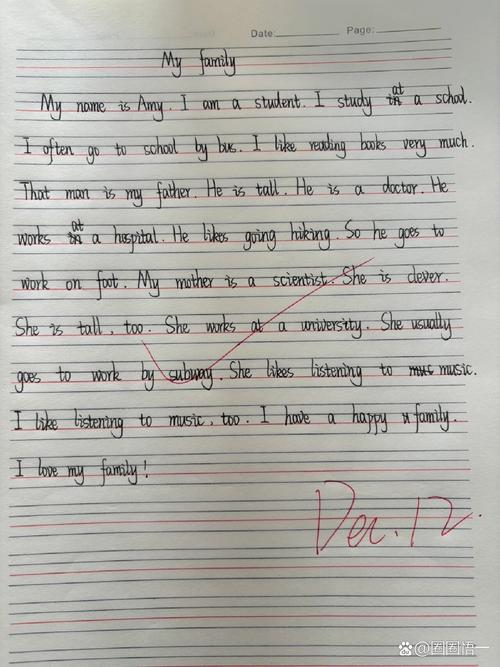 Date:
Page:
My family
My name is Amy. I am a student. I study at a school.
I often go to school by bus. I like reading books very much.
That man is my father. He is tall. He is a doctor. He
works at a hospital. He likes going hiking. So he goes to
work on foot. My mother is a scientist. She is clever.
She is tall, too. She works at a university. She usually
goes to work by subway. She likes listening to music.
I like listening to music, too. I have a happy family.
I love my family!
Dec. 12.
@圈圈悟一